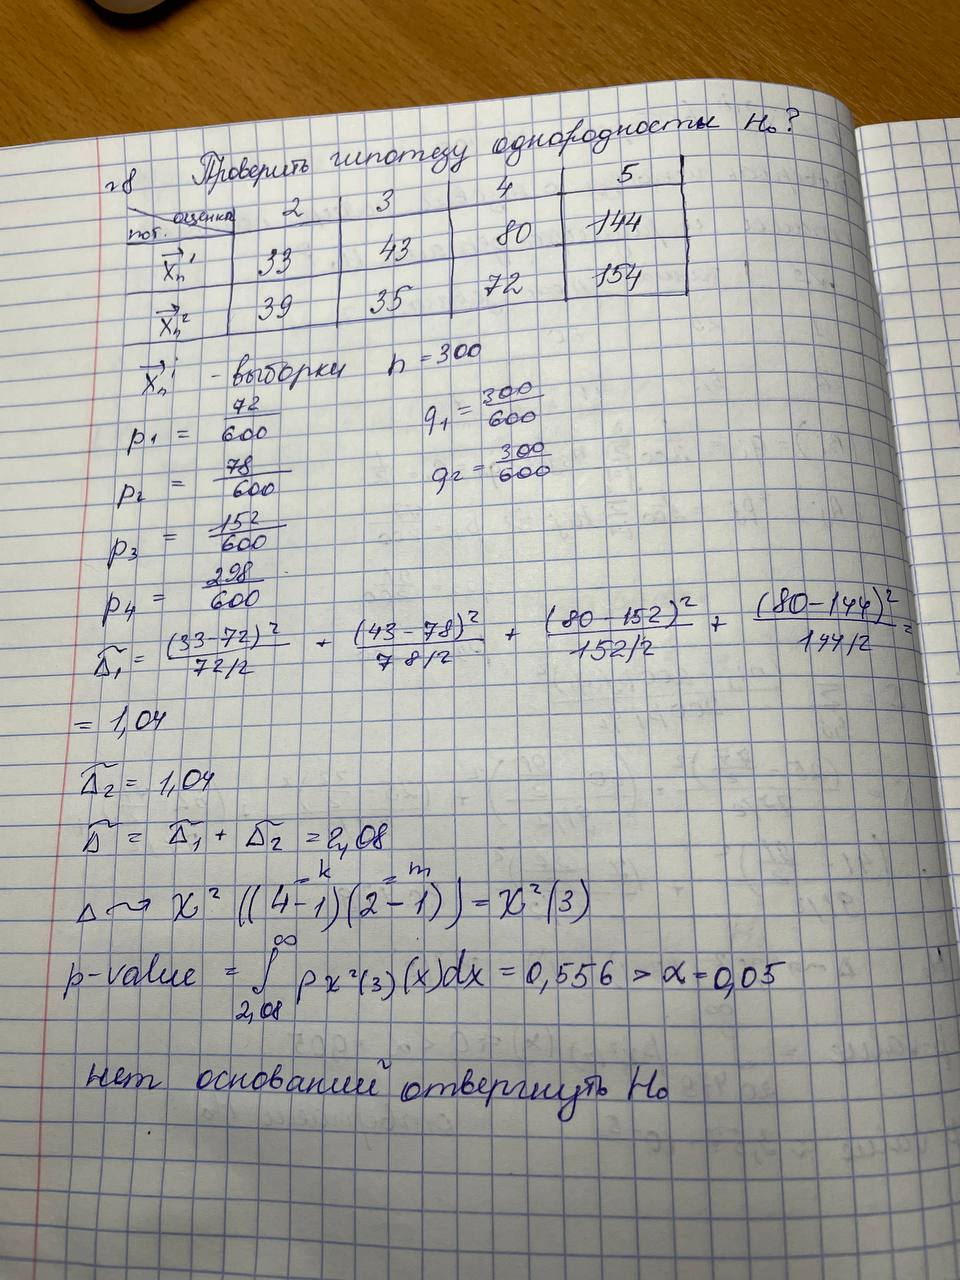 №8 Проверить гипотезу однородности H₀?
оценка 2 3 4 5
пот.
X⃗ₙ¹ 33 43 80 144
X⃗ₙ² 39 35 72 154
X⃗ₙⁱ - выборки n = 300
p₁ = 72/600 q₁ = 300/600
p₂ = 78/600 q₂ = 300/600
p₃ = 152/600
p₄ = 298/600
Δ̃₁ = (33-72)²/72/2 + (43-78)²/78/2 + (80-152)²/152/2 + (80-144)²/144/2 =
= 1,04
Δ̃₂ = 1,04
Δ̃ = Δ̃₁ + Δ̃₂ = 2,08
= k = m
Δ ⇝ X² ((4-1)(2-1)) = X²(3)
p-value = ∫_{2,08}^{∞} p x²(3) (x)dx = 0,556 > α = 0,05
нет оснований отвергнуть H₀